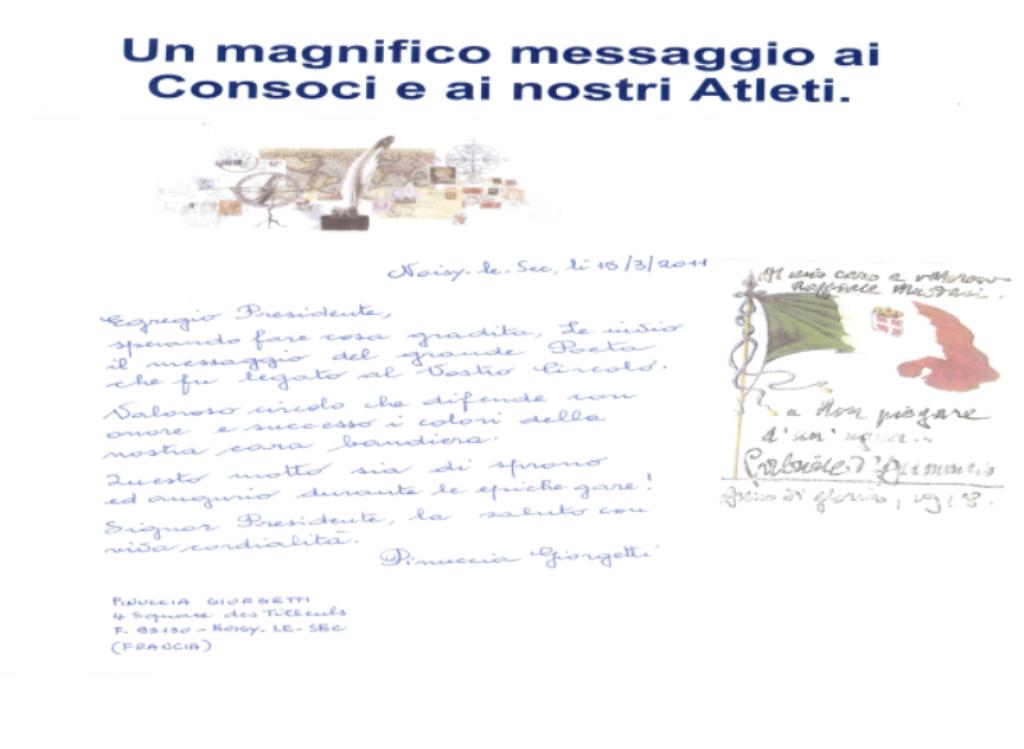 Un magnifico messaggio ai
Consoci e ai nostri Atleti.
Noisy-le-Sec, li 15/3/2011
Egregio Presidente,
sperando fare cosa gradita, Le invio
il messaggio del grande Poeta
che fu legato al Vostro Circolo.
Valoroso circolo che difende con
onore e successo i colori della
nostra cara bandiera.
Questo motto sia di sprono
ed augurio durante le epiche gare!
Signor Presidente, la saluto con
viva cordialità.
Pinuccia Giorgetti
PINUCCIA GIORGETTI
4 Square des Tilleuls
F. 93130 - NOISY-LE-SEC
(FRANCIA)
Al mio caro e valoroso
Raffaele
a Non piegare
d'un'ugna...
Gabriele d'Annunzio